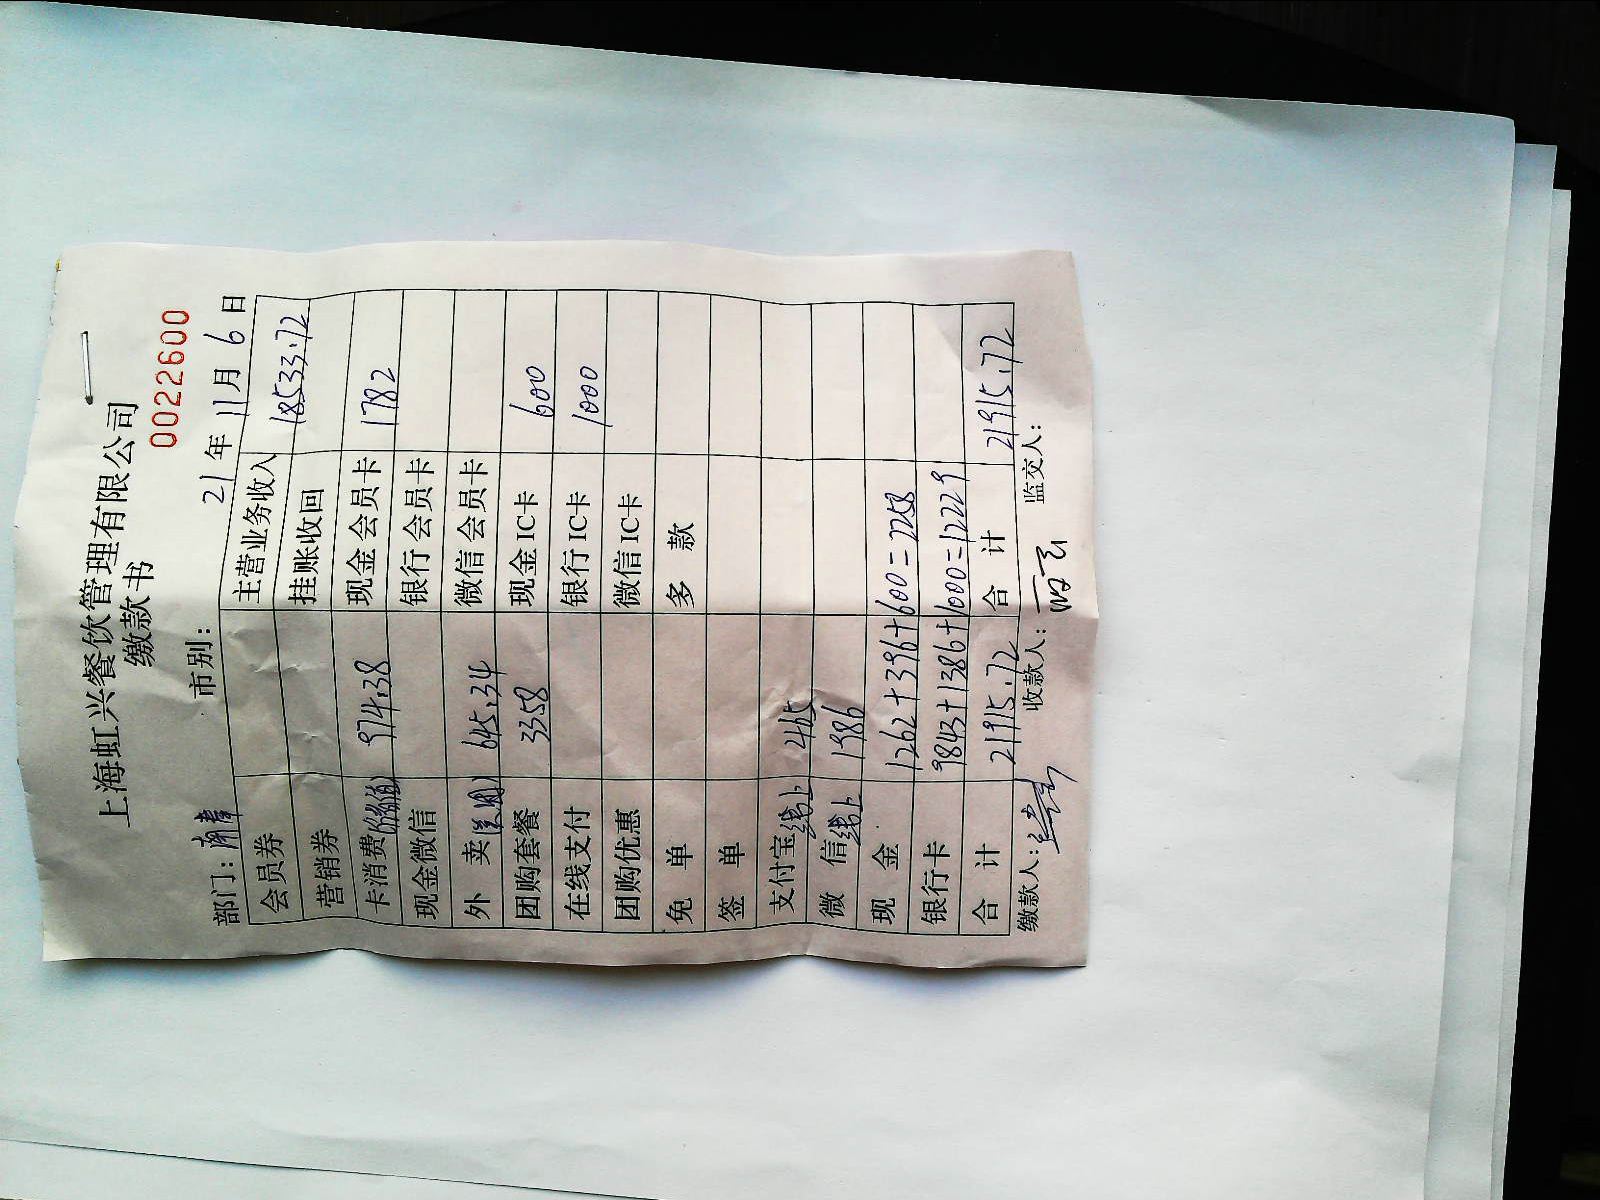 上海虹兴餐饮管理有限公司
缴款书
0022600
部门： 市别： 21年11月6日
会员券 主营业务收入 18533.72
营销券 挂账收回
卡消费 974.38 现金会员卡 1782
现金微信 银行会员卡
外 卖 645.34 微信会员卡
团购套餐 3358 现金IC卡 600
在线支付 银行IC卡 1000
团购优惠 微信IC卡
免 单 多 款
签 单
支付宝线上 465
微 信线上 1986
现 金 1262+396+600=2258
银行卡 9843+1386+1000=12229
合 计 21915.72 合 计 21915.72
缴款人： 收款人： 监交人：